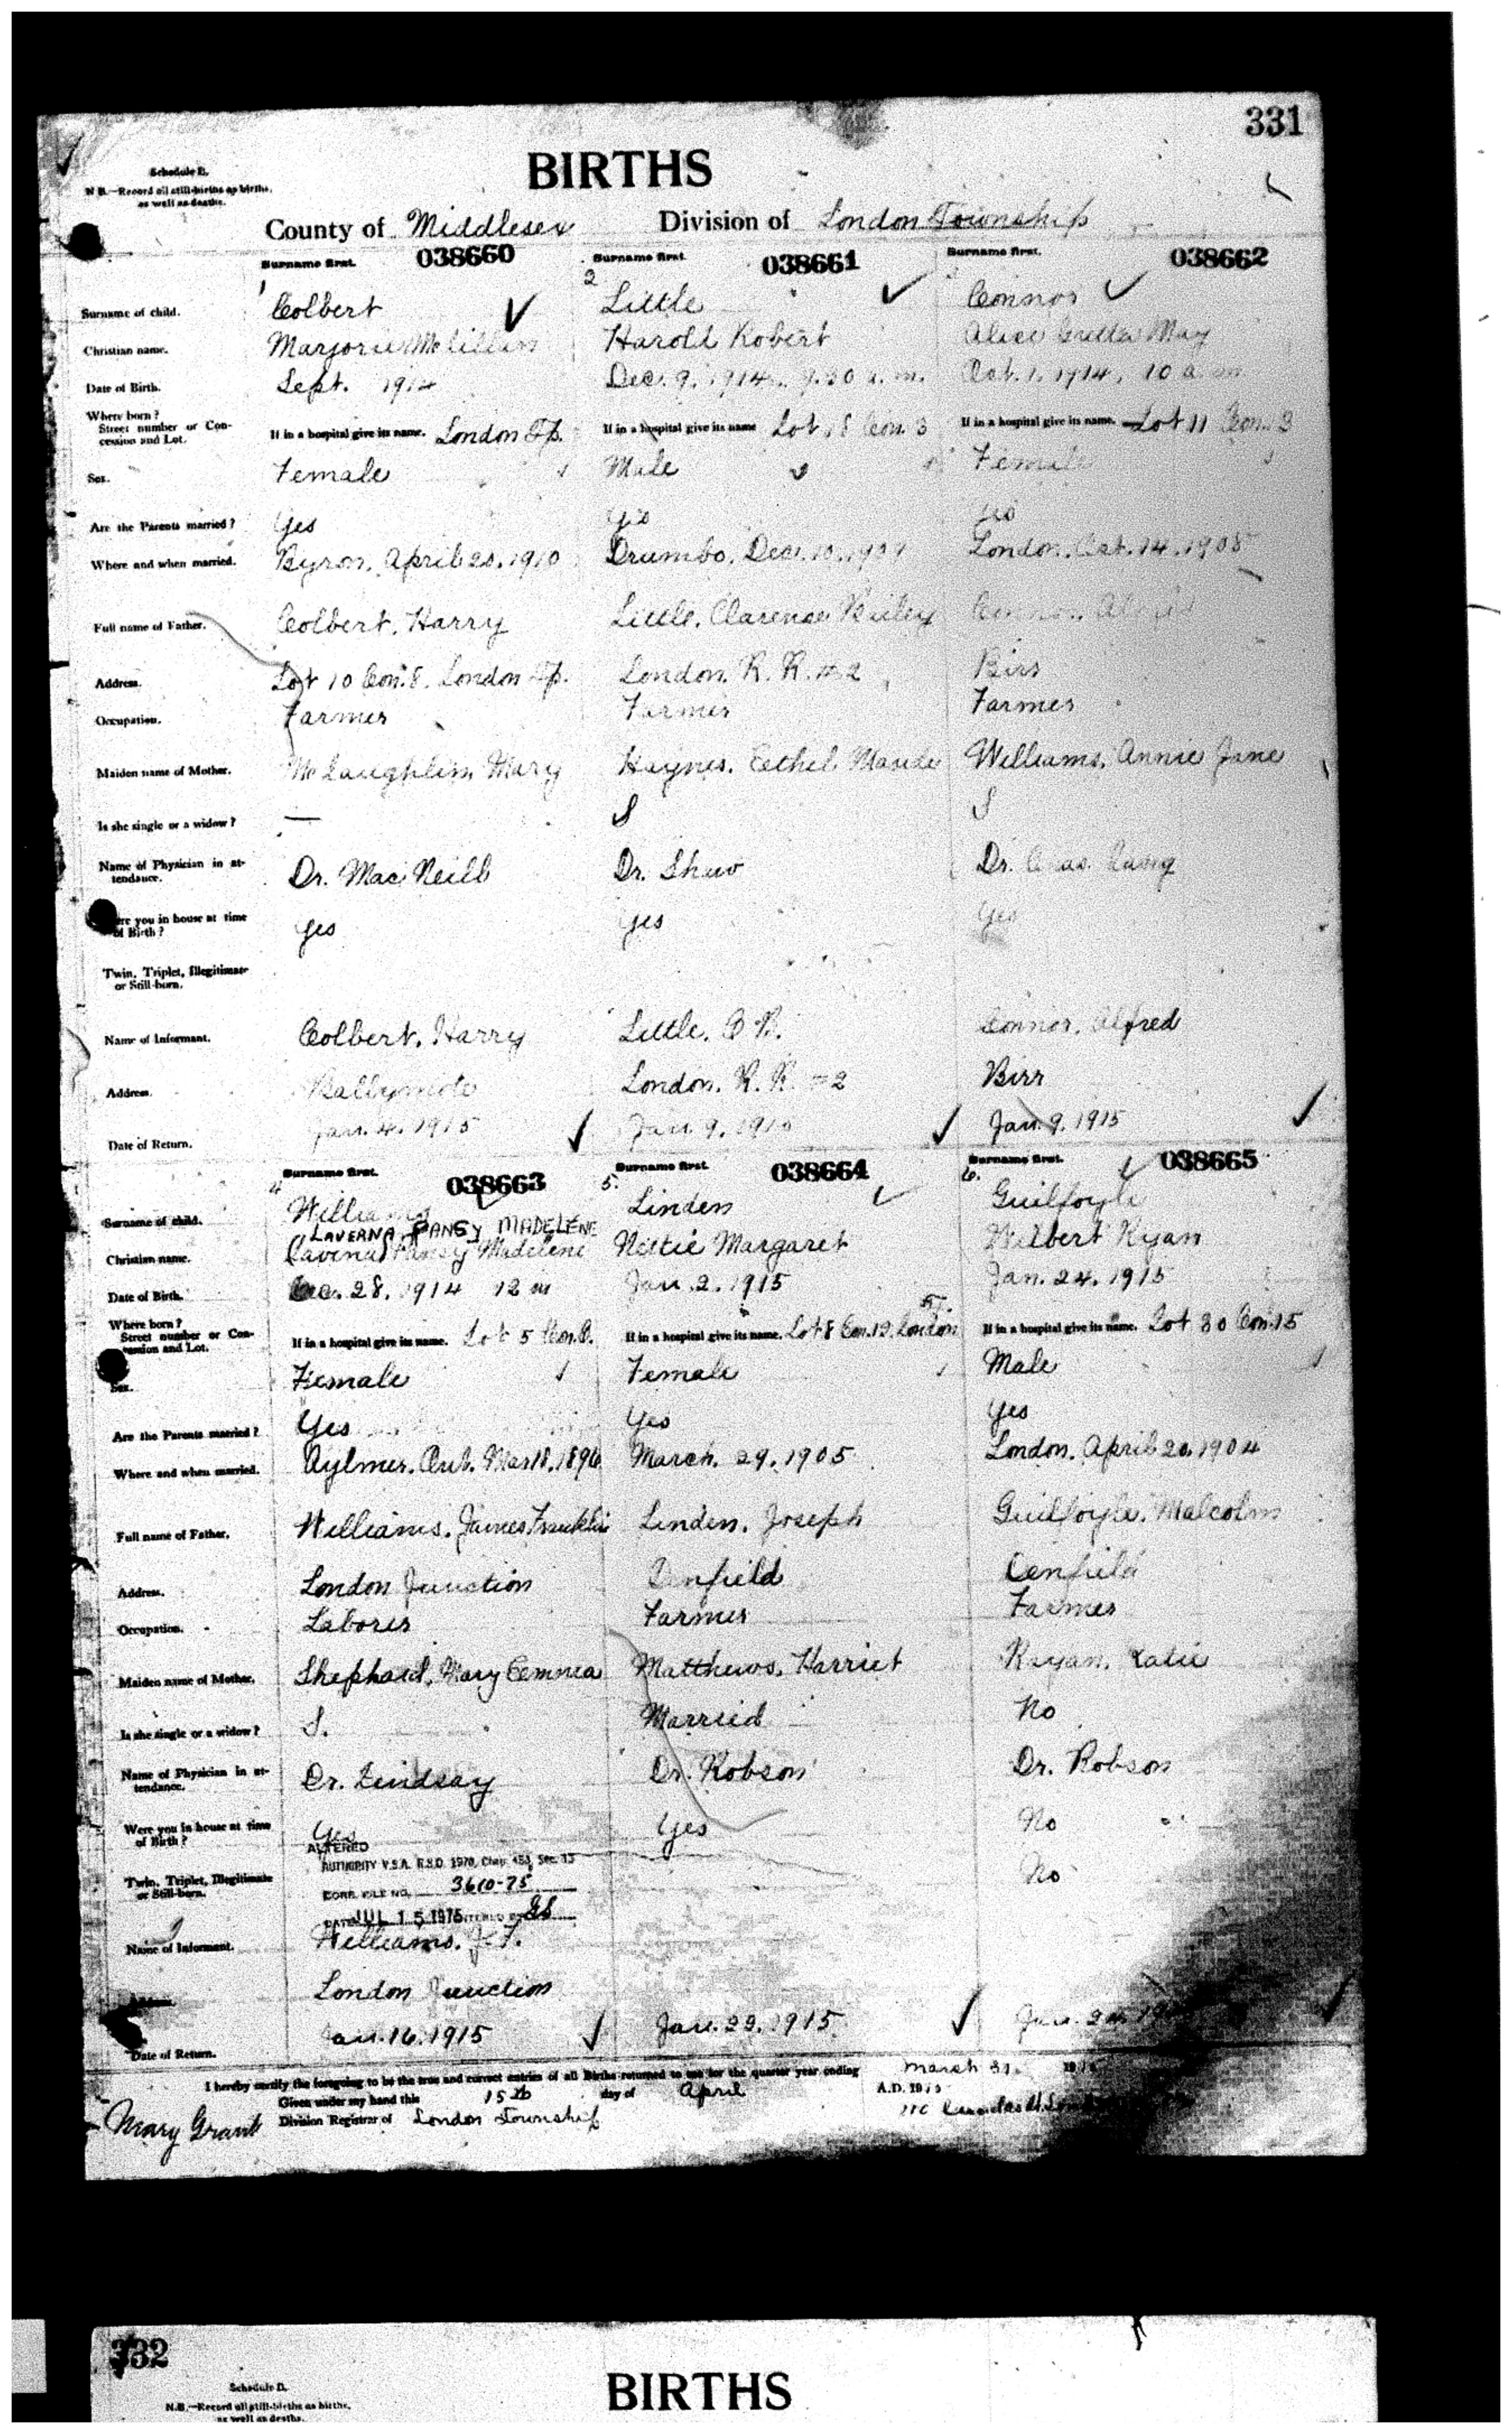 331
Schedule B.
N B.—Record all still-births as births, as well as deaths.
BIRTHS
County of Middlesex Division of London Township
Surname first. 038660 Surname first. 038661 Surname first. 038662
Surname of child. 1 Colbert 2 Little Connor
Christian name. Marjorie Harold Robert Alice May
Date of Birth. Sept. 1914 Dec. 9, 1914, a.m. Oct. 1, 1914, 10 a.m.
Where born? Street number or Concession and Lot. If in a hospital give its name. London Tp. If in a hospital give its name Lot 18 Con. 3 If in a hospital give its name. Lot 11 Con. 3
Sex. Female Male Female
Are the Parents married? Yes Yes Yes
Where and when married. Byron, April 20, 1910 Drumbo, Dec. 10, London, Oct. 14, 1908
Full name of Father. Colbert, Harry Little, Clarence
Address. Lot 10 Con. 8. London Tp. London, R. R. #2 Birr
Occupation. Farmer Farmer Farmer
Maiden name of Mother. McLaughlin, Mary Haynes, Ethel Maude Williams, Annie Jane
Is she single or a widow? — S S
Name of Physician in attendance. Dr. MacNeill Dr. Shaw Dr.
Were you in house at time of Birth? Yes Yes Yes
Twin, Triplet, Illegitimate or Still-born.
Name of Informant. Colbert, Harry Little, C. B. Connor, Alfred
Address. Ballymote London, R. R. #2 Birr
Date of Return. Jan. 4, 1915 Jan. 9, 1915 Jan. 9, 1915
Surname first. 038663 Surname first. 038664 Surname first. 038665
Surname of child. 4 Williams 5. Linden 6. Guilfoyle
LAVERNA PANSY MADELENE
Christian name. (Lavina) Pansy Madelene Nettie Margaret Wilbert Ryan
Date of Birth. Dec. 28, 1914 12 m Jan. 2, 1915 Jan. 24, 1915
Where born? Street number or Concession and Lot. If in a hospital give its name. Lot 5 Con. If in a hospital give its name. Lot 8 Con. London Tp. If in a hospital give its name. Lot 30 Con. 15
Sex. Female Female Male
Are the Parents married? Yes Yes Yes
Where and when married. Aylmer, Ont. Mar 18, 1896 March. 29, 1905 London, April 20, 1904
Full name of Father. Williams, James Franklin Linden, Joseph Guilfoyle, Malcolm
Address. London Junction Denfield Denfield
Occupation. Laborer Farmer Farmer
Maiden name of Mother. Shephard, Mary Emma Matthews, Harriet Ryan, Katie
Is she single or a widow? S. Married No
Name of Physician in attendance. Dr. Lindsay Dr. Robson Dr. Robson
Were you in house at time of Birth? Yes Yes No
ALTERED
AUTHORITY V.S.A. R.S.O. 1970, Chap. 483, Sec. 15
Twin, Triplet, Illegitimate or Still-born. No
CORR. FILE NO. 3610-75
DATE JUL 15 1975 ENTERED BY
Name of Informant. Williams, J. F.
Address. London Junction
Date of Return. Jan. 16, 1915 Jan. 22, 1915
I hereby certify the foregoing to be the true and correct entries of all Births returned to me for the quarter year ending March 31
Given under my hand this 15th day of April A.D. 19
Mary Grant Division Registrar of London Township
332
Schedule B.
N.B.—Record all still-births as births, as well as deaths.
BIRTHS